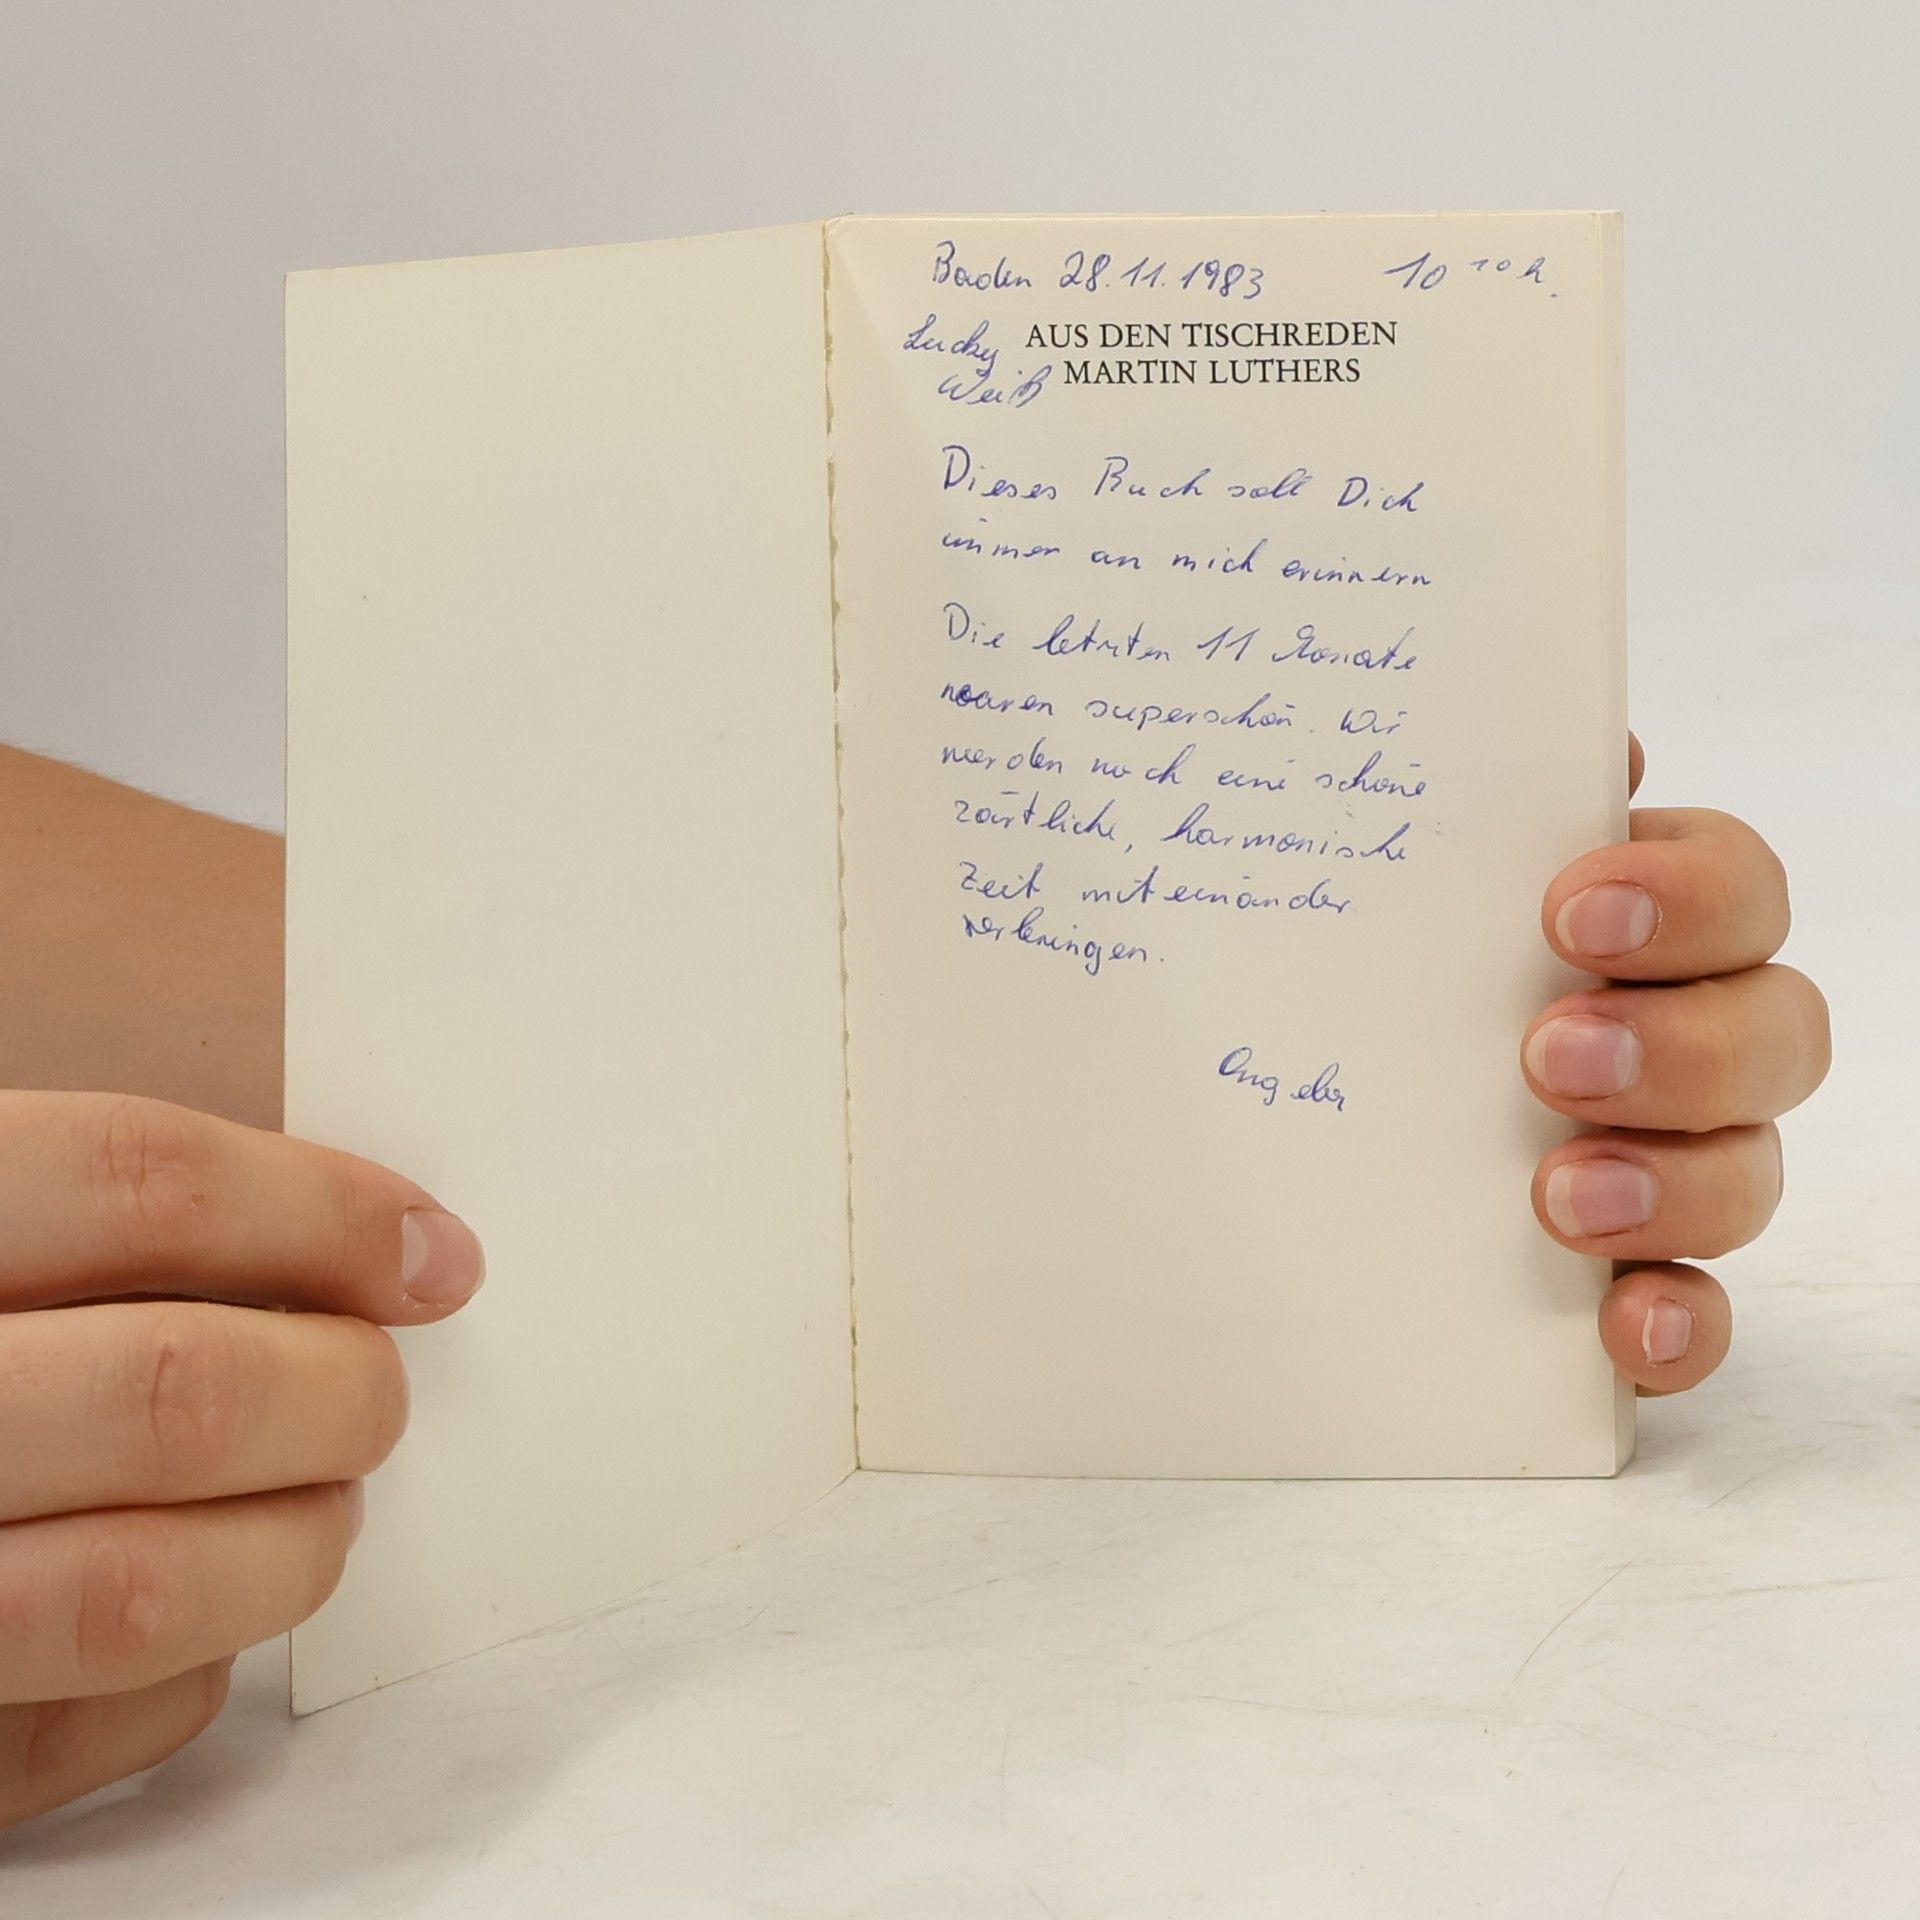 Baden 28.11.1983 10 10 h.
Lucky
Weiß
AUS DEN TISCHREDEN
MARTIN LUTHERS
Dieses Buch soll Dich
immer an mich erinnern
Die letzten 11 Monate
waren superschön. Wir
werden noch eine schöne
zärtliche, harmonische
Zeit miteinander
verbringen.